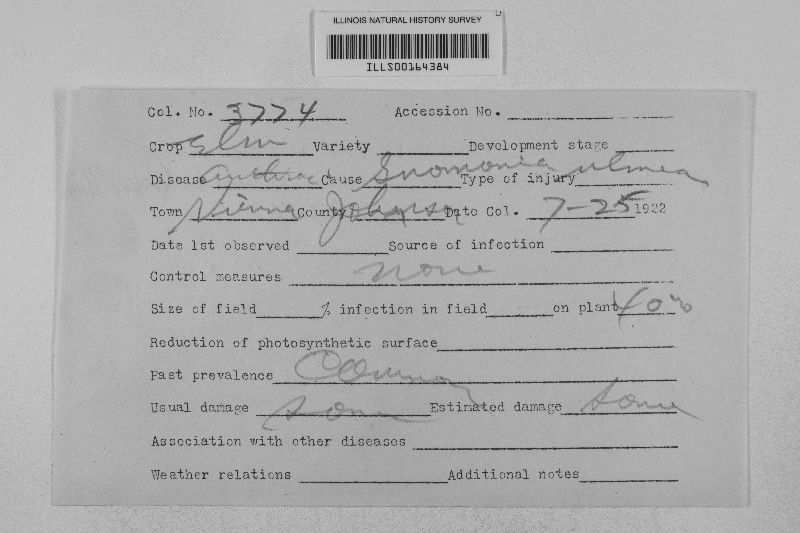 ILLINOIS NATURAL HISTORY SURVEY
ILLS00164384
Col. No. 3774 Accession No.
Crop Elm Variety Development stage
Disease Anthrac Cause Gnomonia ulmea Type of injury
Town Vienna County Johnson Date Col. 7-25 1922
Date 1st observed Source of infection
Control measures none
Size of field % infection in field on plant 40%
Reduction of photosynthetic surface
Past prevalence Common
Usual damage some Estimated damage some
Association with other diseases
Weather relations Additional notes